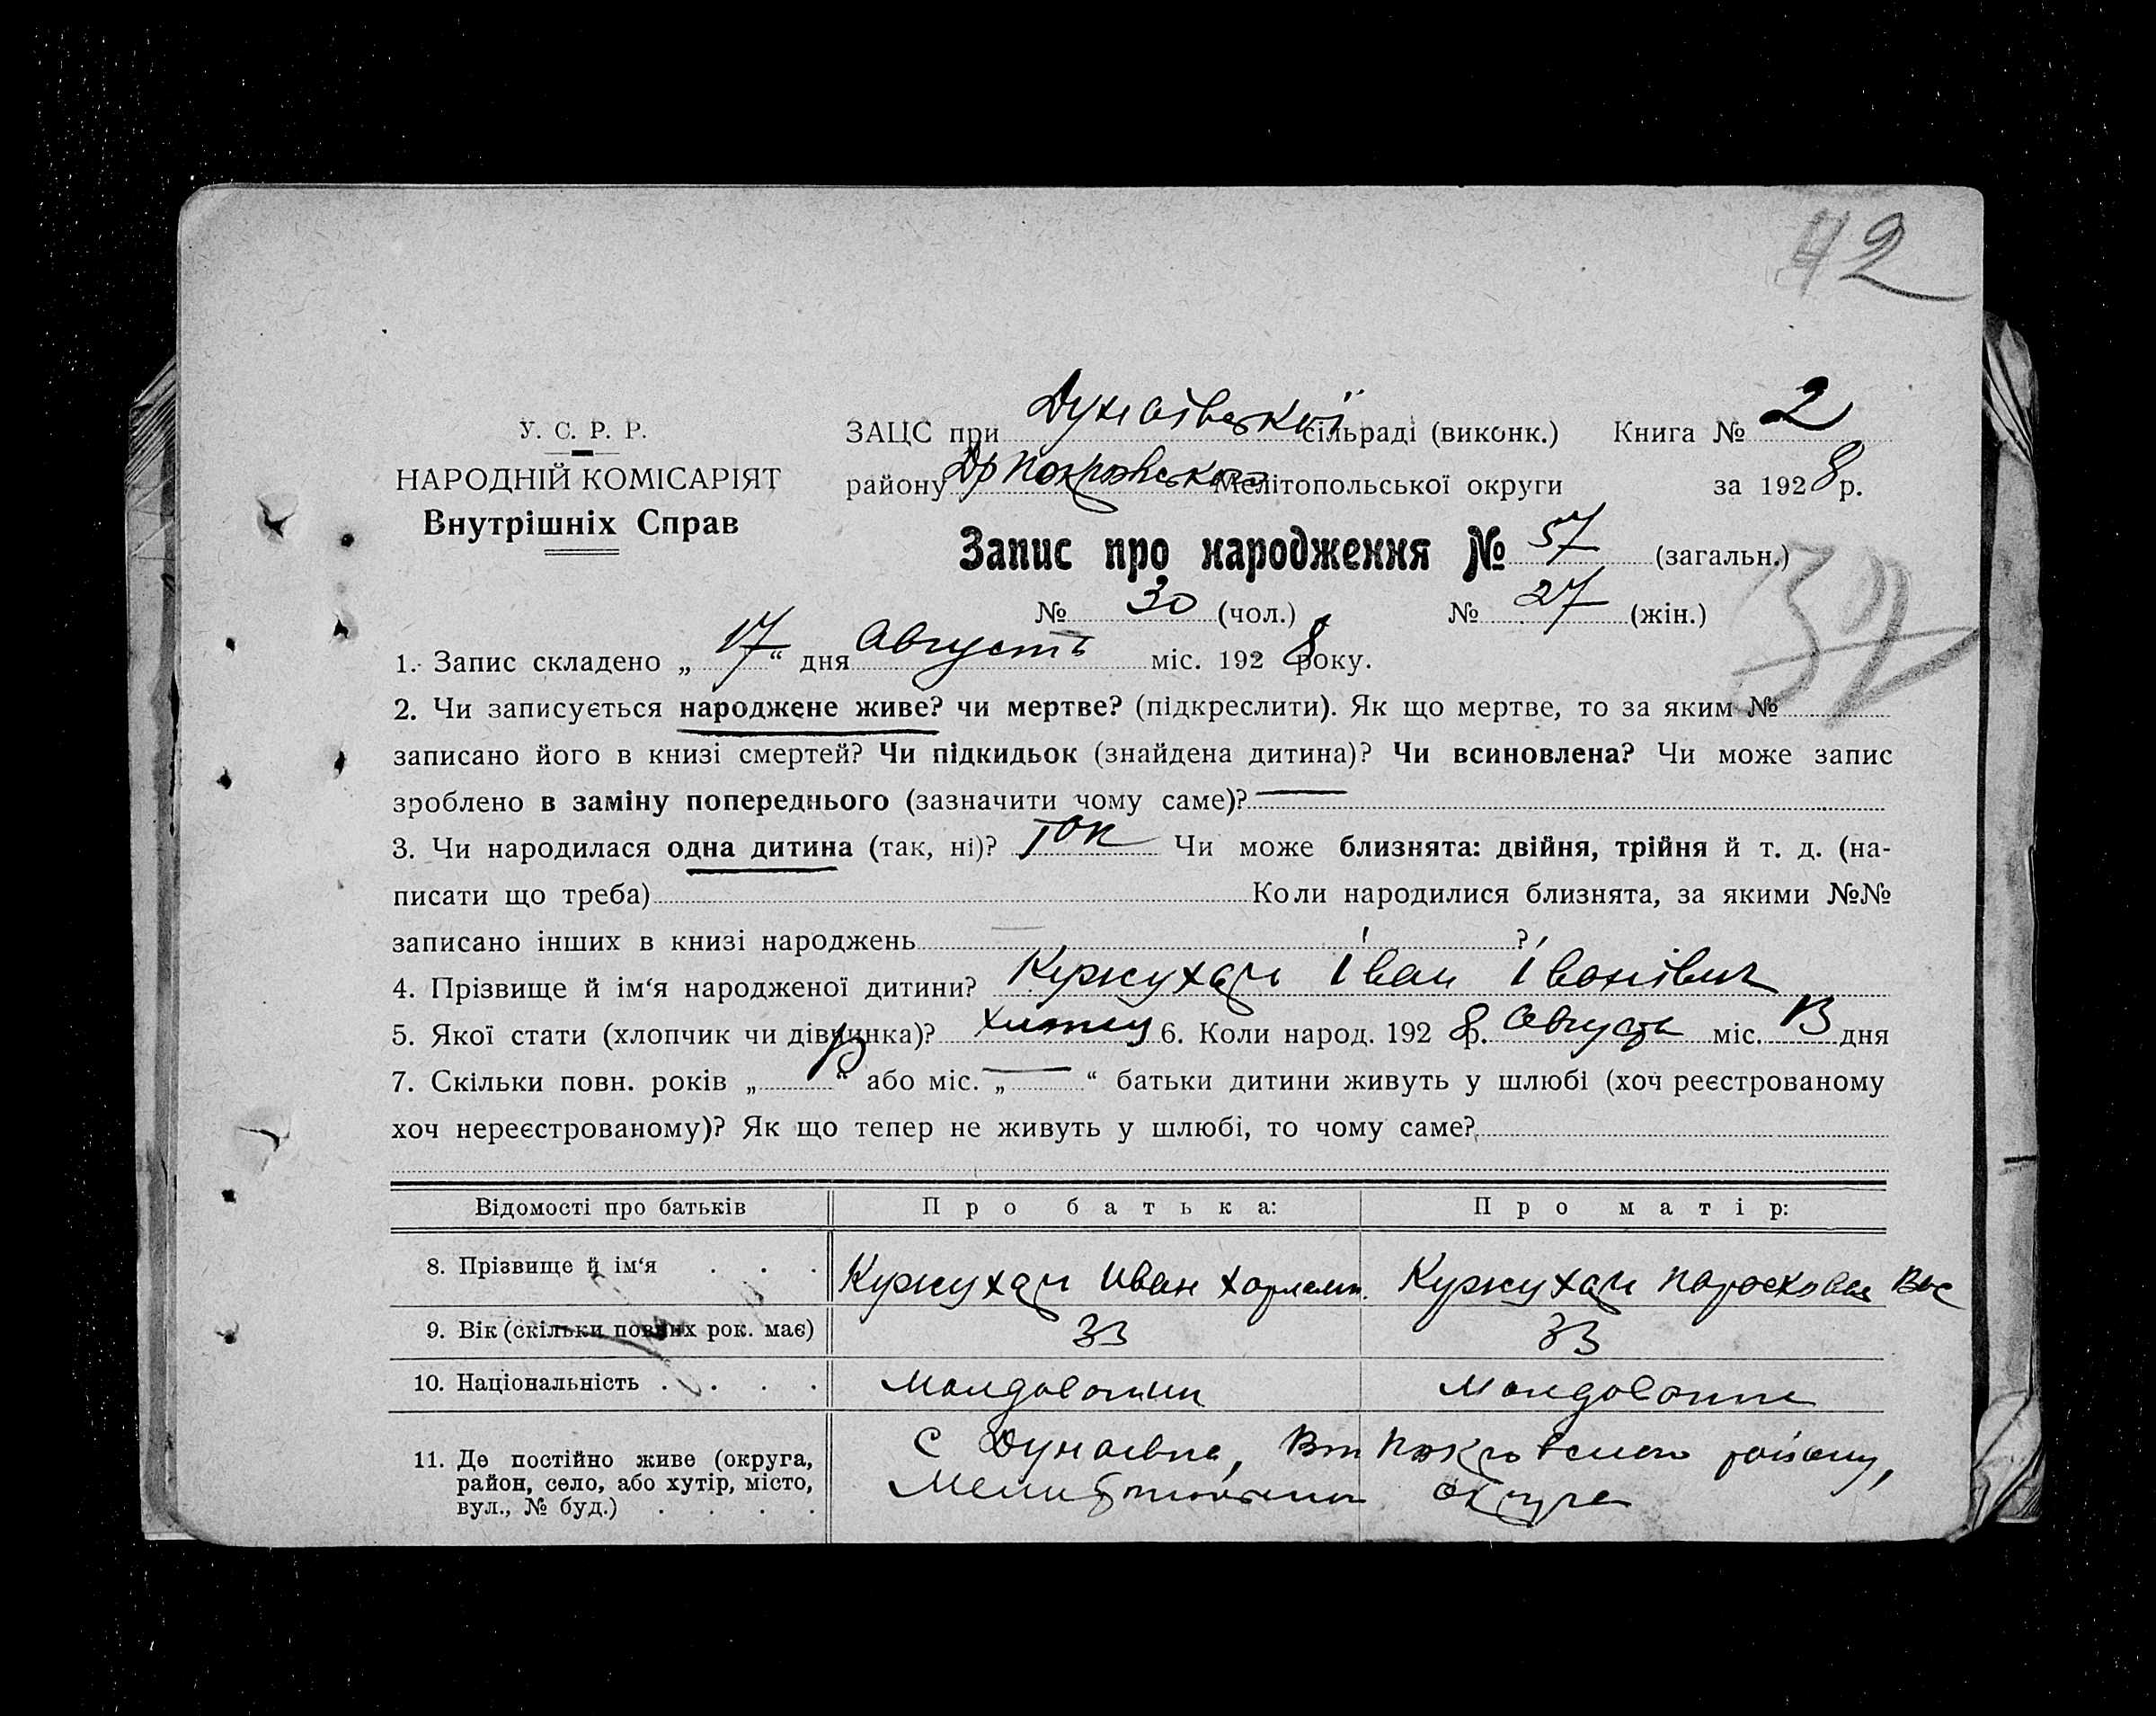 42
У. С. Р. Р.
НАРОДНІЙ КОМІСАРІЯТ
Внутрішніх Справ
ЗАЦС при Дунаївській сільраді (виконк.) Книга № 2
району Покровського Мелітопольської округи за 1928 р.
Запис про народження № 57 (загальн.)
№ 30 (чол.) № 27 (жін.)
32
1. Запис складено „17“ дня Августа міс. 1928 року.
2. Чи записується народжене живе? чи мертве? (підкреслити). Як що мертве, то за яким №
записано його в книзі смертей? Чи підкидьок (знайдена дитина)? Чи всиновлена? Чи може запис
зроблено в заміну попереднього (зазначити чому саме)? —
3. Чи народилася одна дитина (так, ні)? так Чи може близнята: двійня, трійня й т. д. (на-
писати що треба) Коли народилися близнята, за якими №№
записано інших в книзі народжень ?
4. Прізвище й ім‘я народженої дитини? Куржухам Іван Іванівич
5. Якої стати (хлопчик чи дівчинка)? 6. Коли народ. 1928 р. Августа міс. 13 дня
7. Скільки повн. років „13“ або міс. „—“ батьки дитини живуть у шлюбі (хоч реєстрованому
хоч нереєстрованому)? Як що тепер не живуть у шлюбі, то чому саме?
Відомості про батьків Про батька: Про матір:
8. Прізвище й ім‘я . . . Куржухам Иван Харламп. Куржухам Парасковия Вас
9. Вік (скільки повних рок. має) 33 33
10. Національність . . . . Молдованин Молдование
11. Де постійно живе (округа,
район, село, або хутір, місто,
вул., № буд.) . . . .
с Дунаевка, Покровского району,
округа